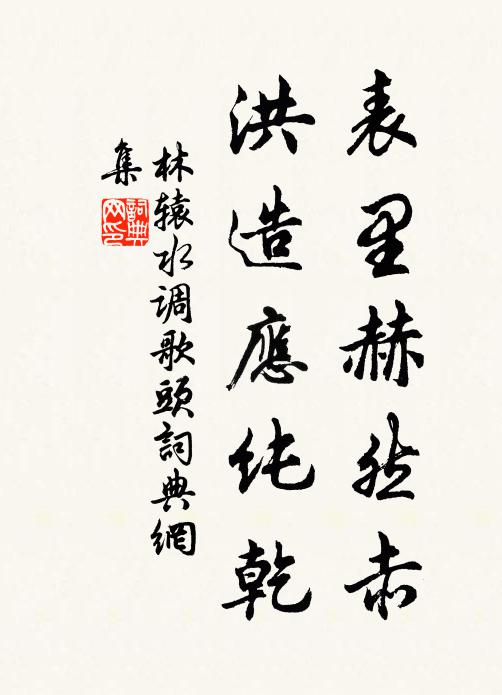 表里赫然赤
洪造應纯乾
林辕水调歌頭詞典網
集
詞典
网印